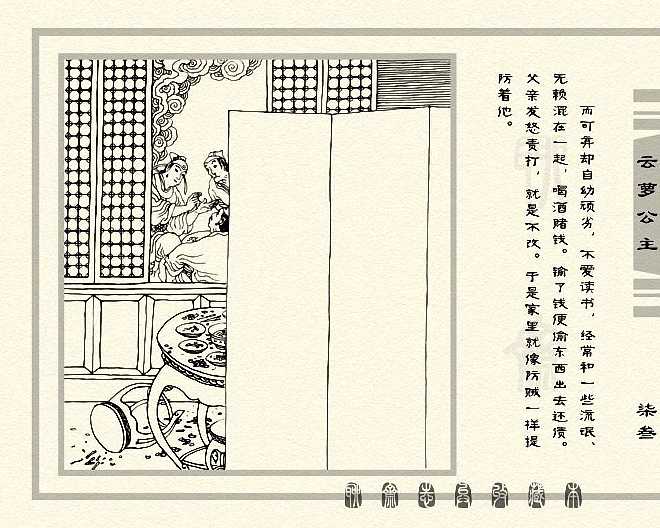 云萝公主
柒叁
而可弃却自幼顽劣，不爱读书，经常和一些流氓、
无赖混在一起，喝酒赌钱。输了钱便偷东西出去还债。
父亲发怒责打，就是不改。于是家里就像防贼一样提
防着他。